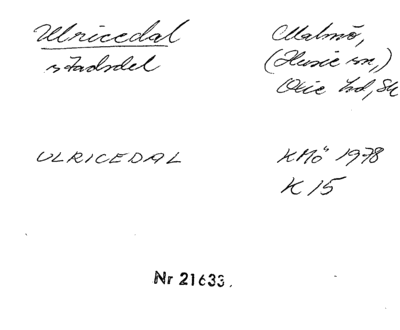 Ulricedal
stadsdel
Malmö,
(Husie sn,)
Oxie hd, Sk
ULRICEDAL
KMö 1978
K 15
Nr 21633.